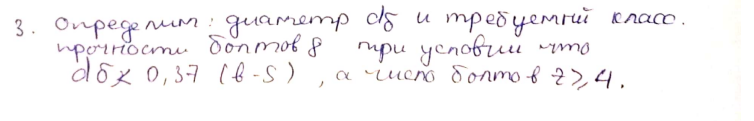 3. Определим: диаметр dб и требуемый класс.
прочности болтов 8 при условии что
dб ≤ 0,37 (b-S), а число болтов z≥4.